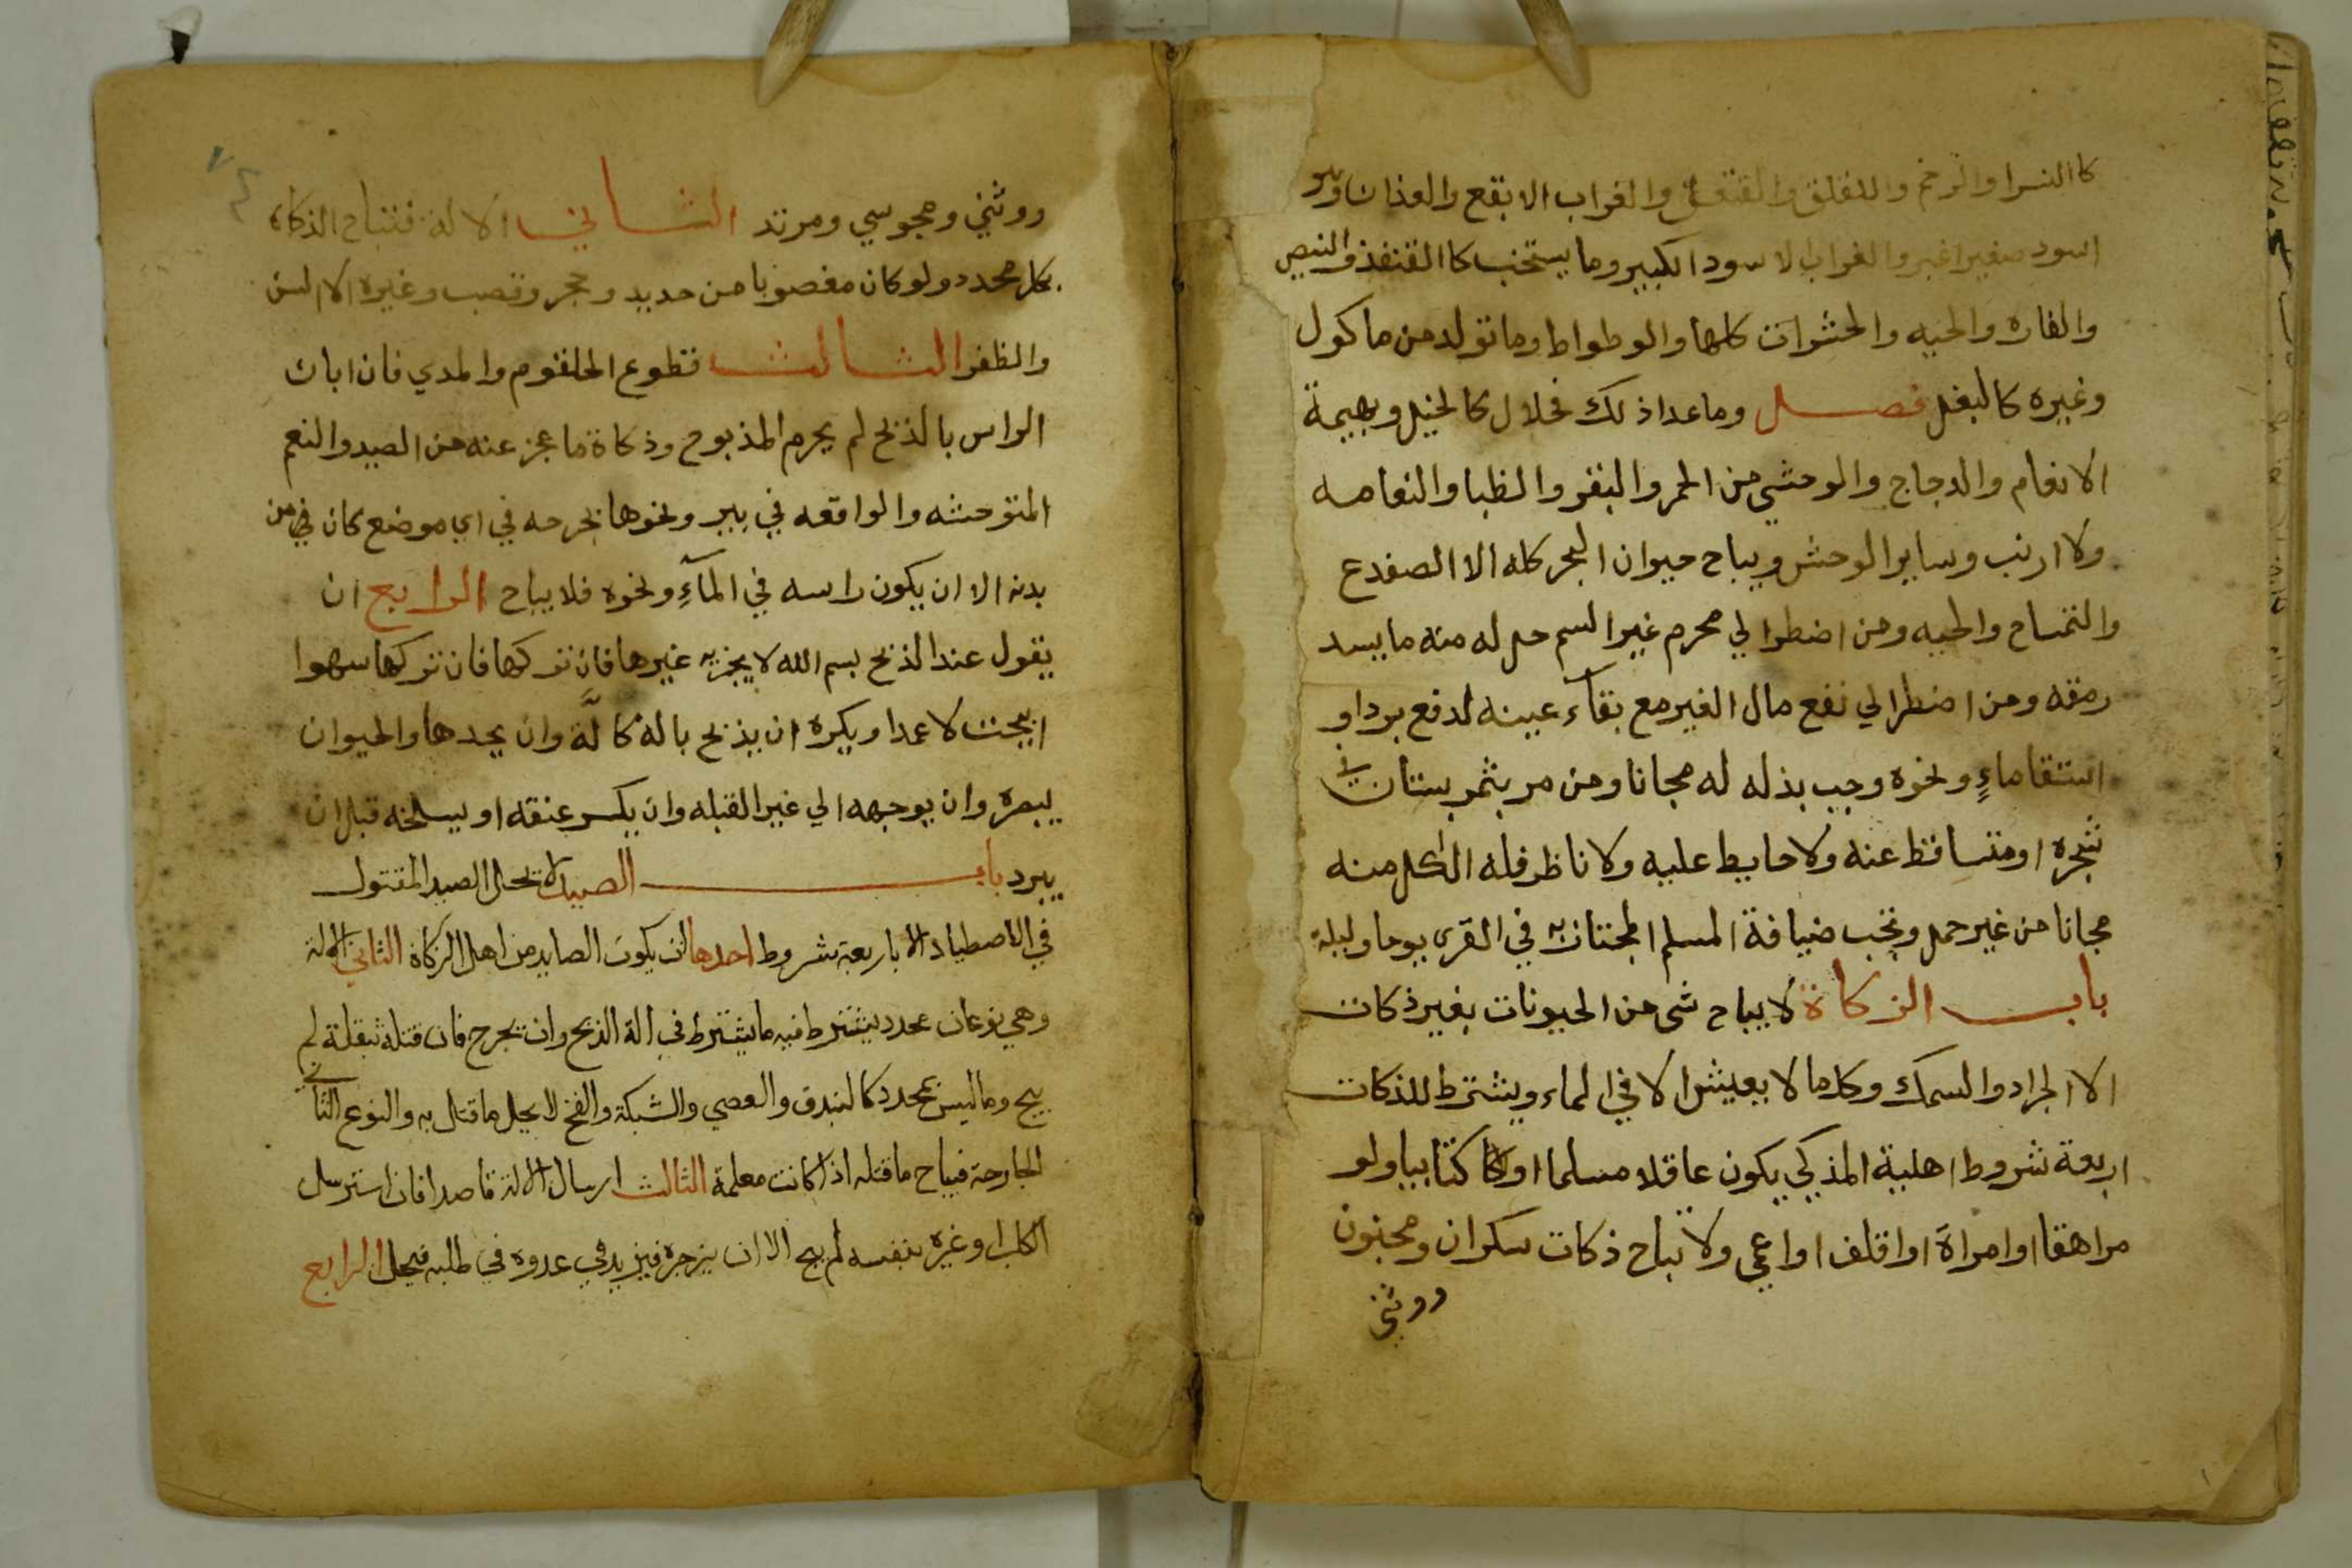 كاالنسر والرخم واللقلق والقعقق والغراب الابقع والغداف وهو
اسود صغير اغبر والغراب لاسود الكبير وما يستخب كاالقنفذ والنيص
والفاره والحيه والحشرات كلها والوطواط وما تولد من ماكول
وغيره كالبغل فصل وما عدا ذلك فحلال كالخيل وبهيمة
الانعام والدجاج والوحشي من الحمر والبقر والظبا والنعامه
ولاارنب وساير الوحش ويباح حيوان البحر كله الا الضفدع
والتمساح والحيه ومن اضطر الي محرم غير السم حل له منه ما يسد
رمقه ومن اضطر الي نفع مال الغير مع بقآء عينه لدفع برد او
استقا ماءٍ ونحوه وجب بذله له مجانا ومن مر بثمر بستان في
شجره او متساقط عنه ولا حايط عليه ولا ناظر فله الاكل منه
مجانا من غير حمل وتجب ضيافة المسلم المجتاز به في القرى يوما وليلة
باب الزكاة لا يباح شى من الحيونات بغير ذكات
الا الجراد والسمك وكل ما لا يعيش الا في الماء ويشترط للذكات
اربعة شروط اهلية المذكي يكون عاقلا مسلما او كتابيا ولو
مراهقا او امراة او اقلف او اعمي ولا تباح ذكات سكران ومجنون
ووثني
ووثني ومجوسي ومرتد الثاني الالة فتباح الذكاة
بكل محدد ولو كان مغصوبا من حديد وحجر وقصب وغيره الا السن
والظفر الثالث قطوع الحلقوم والمدي فان ابان
الراس بالذبح لم يحرم المذبوح وذكاة ما عجز عنه من الصيد والنعم
المتوحشه والواقعه في بير ونحوها بجرحه في اي موضع كان في من
بدنه الا ان يكون راسه في المآءِ ونحوه فلا يباح الرابع ان
يقول عند الذبح بسم الله لا يجزيه غيرها فان تركها فان تركها سهوا
ابيحت لا عمدا ويكره ان يذبح بالة كالَّة وان يحدها والحيوان
يبصره وان يوجهه الي غير القبله وان يكسر عنقه او يسلخه قبل ان
يبرد باب الصيد لا يحل الصيد المقتول
في الاصطياد الا باربعة شروط احدها ان يكون الصايد من اهل الزكاة الثاني الالة
وهي نوعان محدد يشترط فيه ما يشترط في الة الذبح وان يجرح فان قتله بثقله لم
يبح وما ليس بمحدد كالبندق والعصي والشبكة والفخ لا يحل ما قتل به والنوع الثاني
الجارحة فيباح ما قتله اذا كانت معلمة الثالث ارسال الالة قاصدا فان استرسل
الكلب او غيره بنفسه لم يبح الا ان يزجره فيزيد في عدوه في طلبه فيحل الرابع